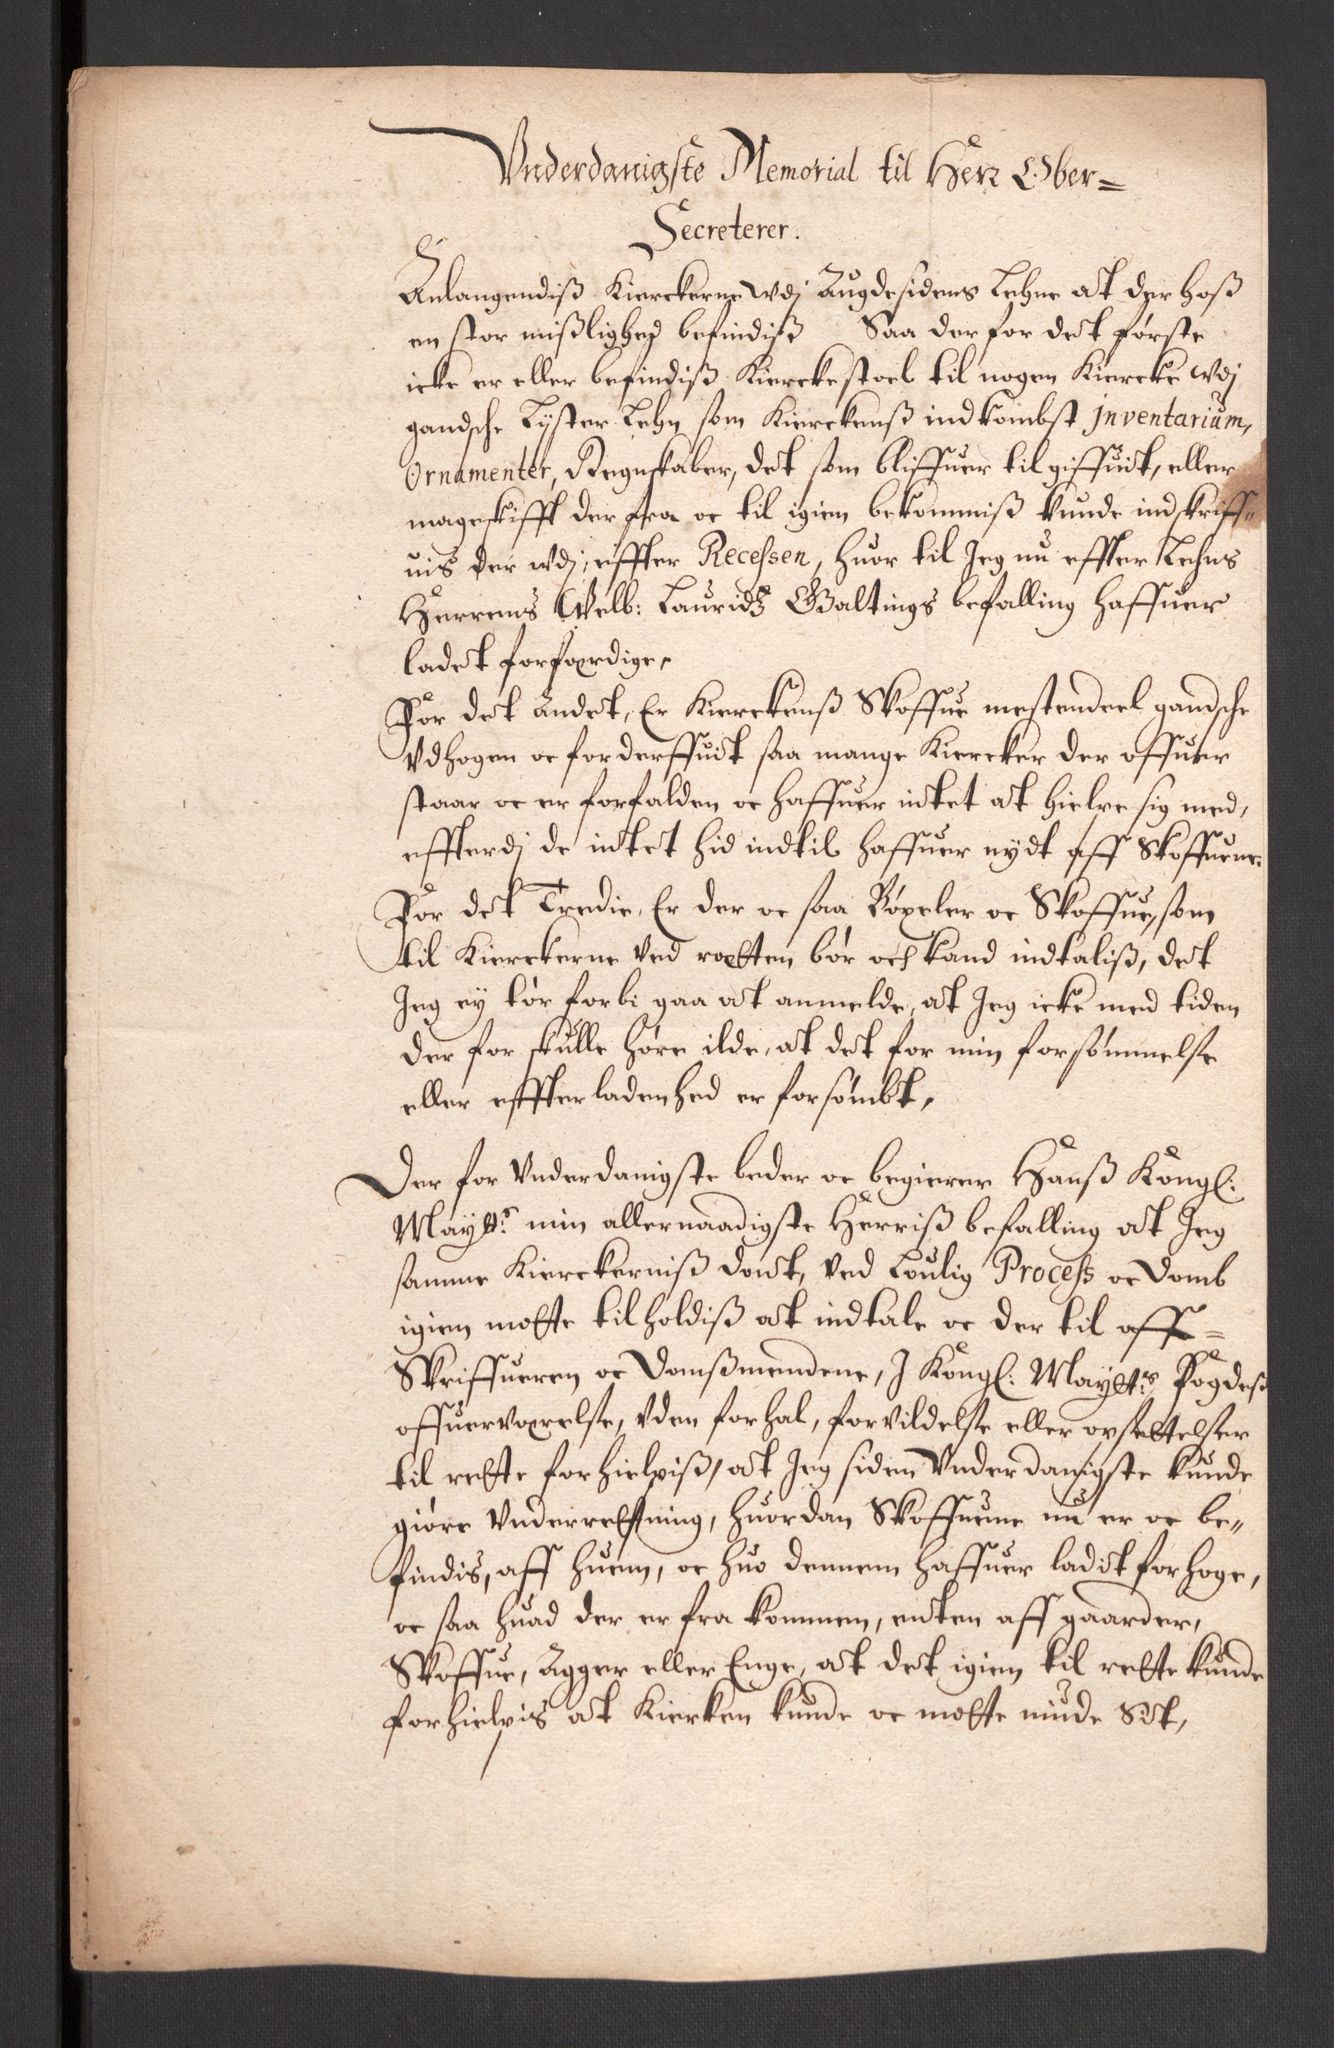 Vnderdanigste Memorial til Herr Ober=
Secreterer.
Anlangendiß Kierckerne wdj Augdesidens Lehne at der hoß
en stor mißlighed befindiß Saa der for det første
icke er eller befindiß Kierckestoel til nogen Kiercke wdj
gandsche Lyster Lehn som Kierckenß indkombst Jnventarium,
Ornamenter, Regnskaber, det som bliffuer til giffuit, eller
mageskifft der fra oc til igien bekommiß kunde indskriff„
uis der wdj, effter Recessen, huor til Jeg nu effter Lehns
Herrens Welb: Lauridz Galtings befalling haffuer
ladet forfærdige,
For det Andet, Er Kierckenß Skoffue mestendeel gandsche
Vdhogen oc forderffuit saa mange Kiercker der offuer
staar oc er forfalden oc haffuer intet at hielpe sig med,
effterdj de intet hid indtil haffuer nydt aff Skoffuene.
For det Tredie, Er der oc saa Røxeler oc Skoffue, som
til Kierckerne ved ræтten bør och kand indtaliß, det
Jeg ey tør forbi gaa at anmelde, at Jeg icke med tiden
der for skulle høre ilde, at det for min forsømmelse
eller effterladenhed er forsømbt,
Der for Vnderdanigste beder oc begierer Hanß Kongl:
Maytts: min allernaadigste Herriß befalling at Jeg
samme Kierckerniß donit, ved Loulig Process oc Domb
igien motte tilholdiß at indtale oc der til aff=
Skriffueren oc Domßmendene, J Kongl: Maytts: Fogdeß
offueruærelse, vden forhal, forvildelse eller opsettelser
til rette forhielpiß, at Jeg siden Vnderdanigste kunde
giøre Vnderrettning, huordan Skoffuene nu er oc be„
findis, aff huem, oc huo dennem haffuer ladit forhoge,
oc saa huad der er fra kommen, enten aff gaarder,
Skoffue, Agger eller Enge, at det igien til rette kunde
forhielpis at Kierken kunde oc motte niude Sit,